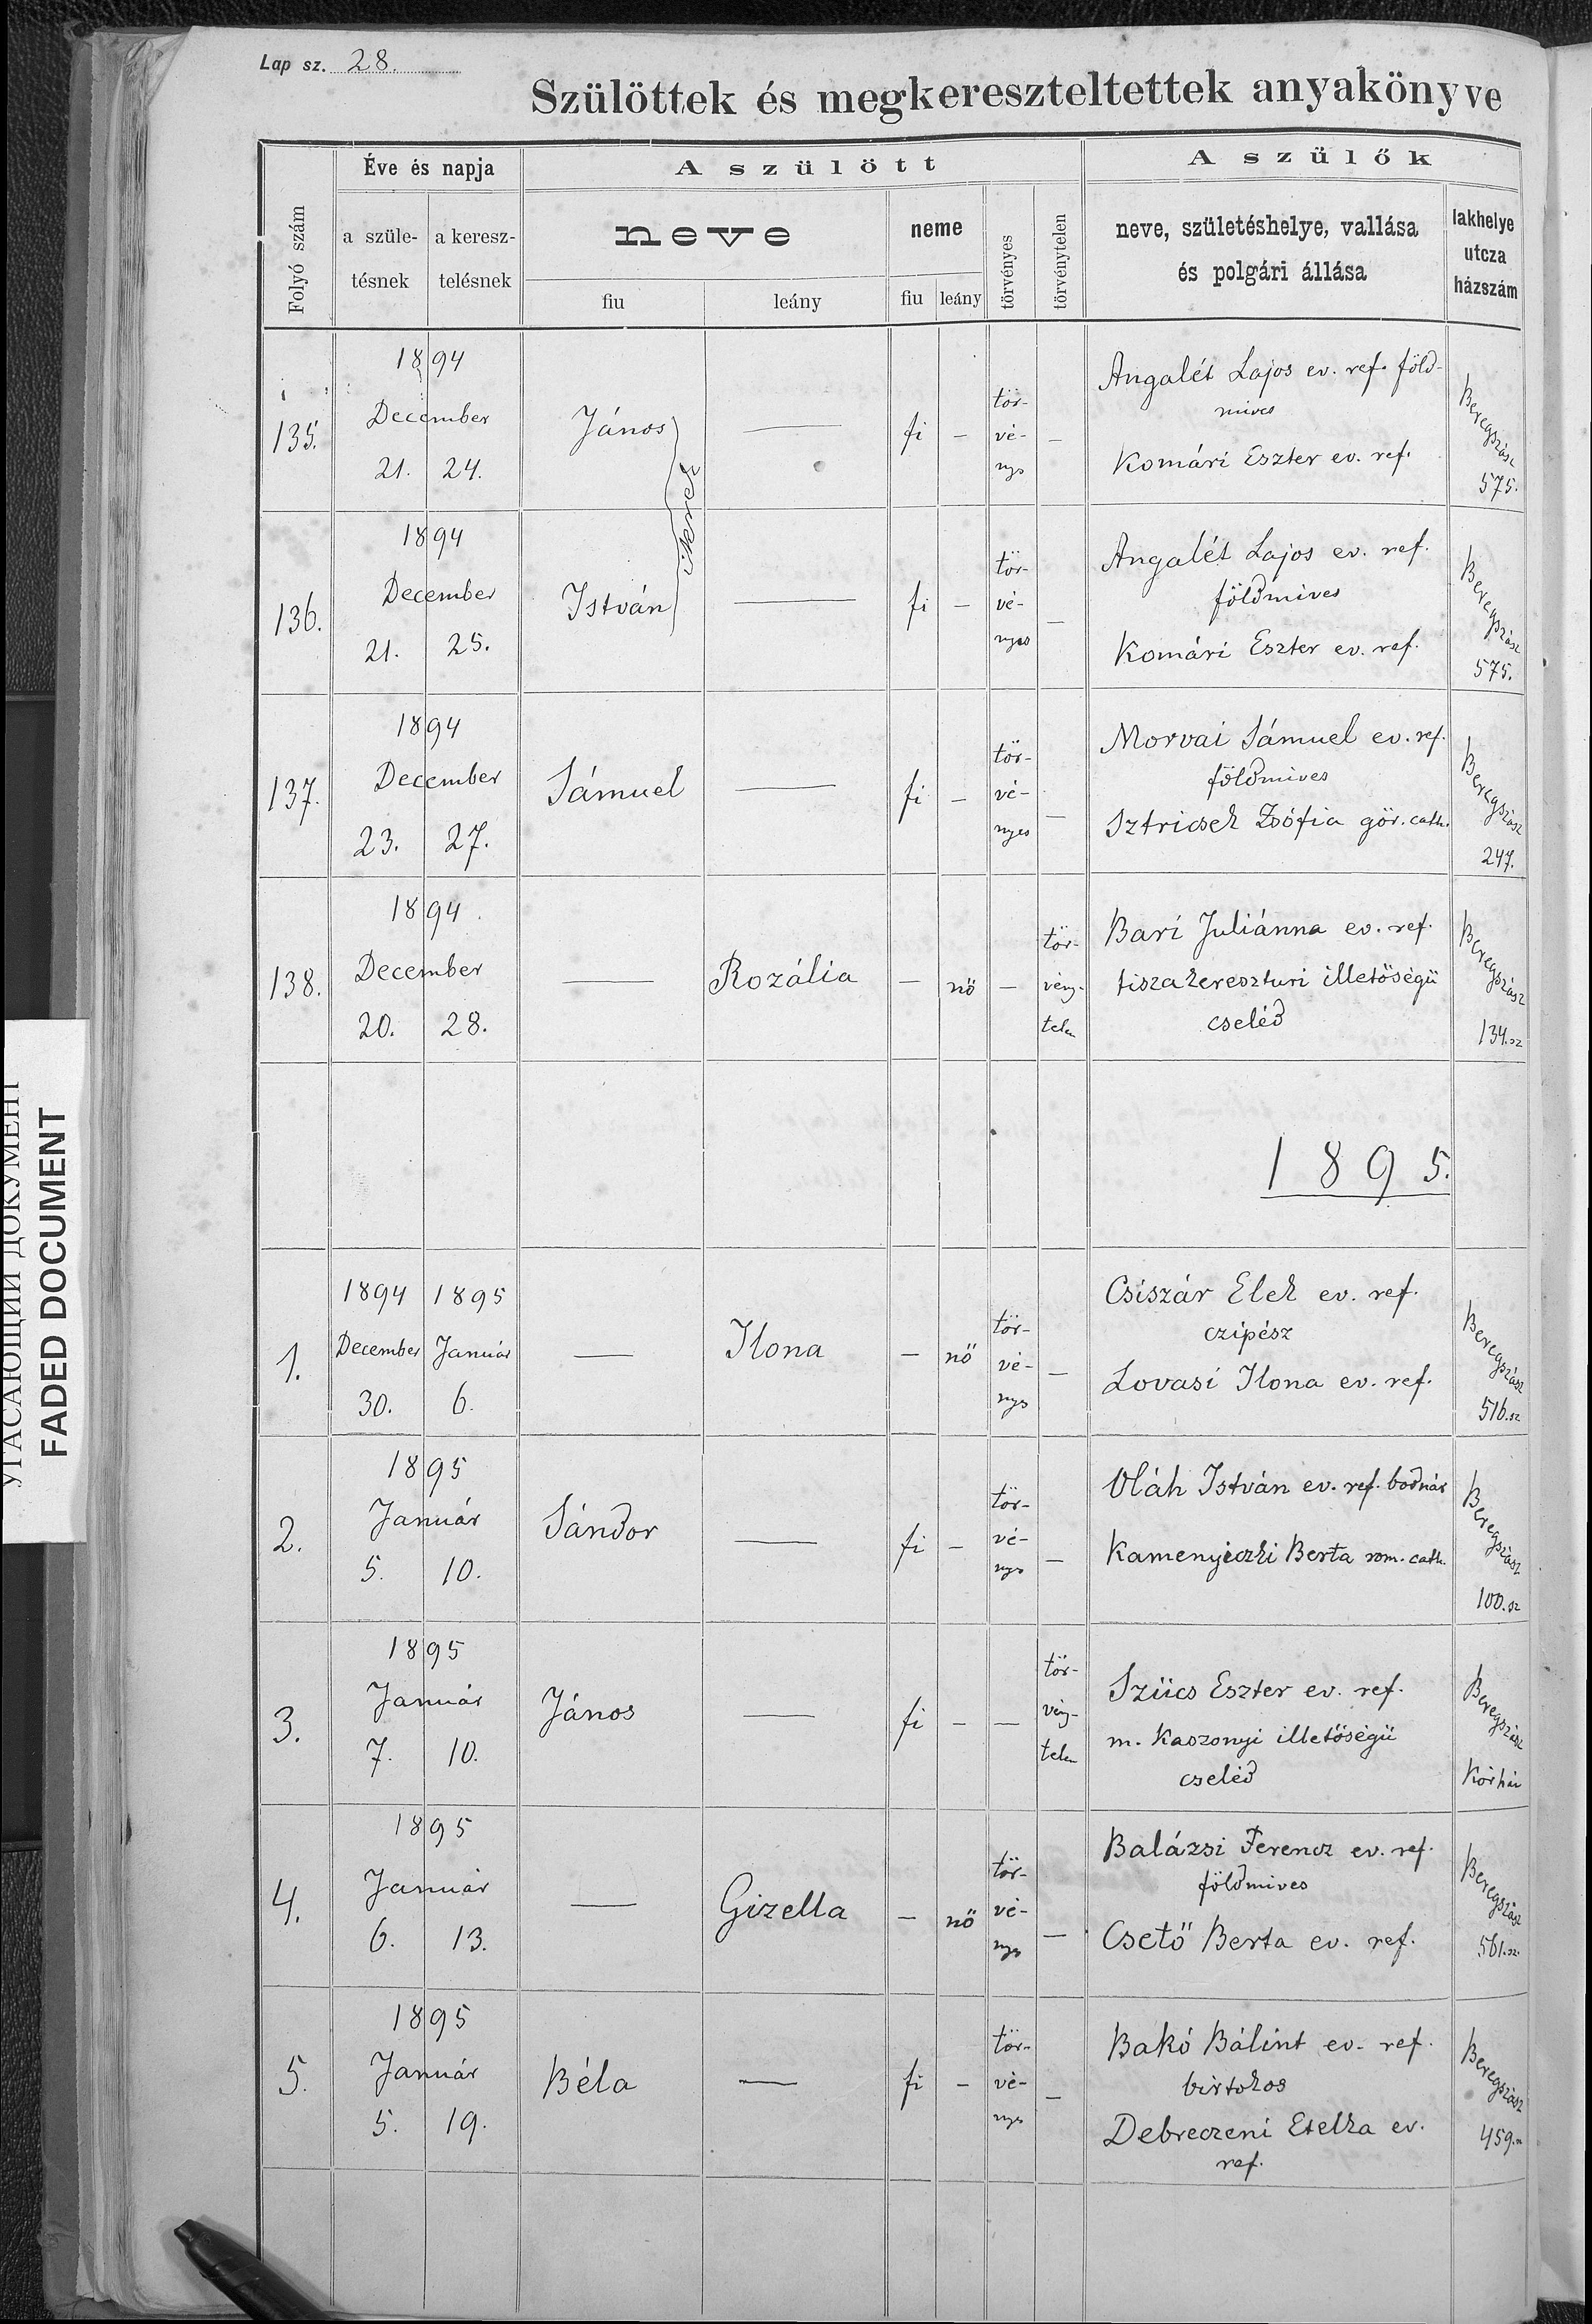 Lap sz. 28.
Szülöttek és megkereszteltettek anyakönyve
Folyó szám
Éve és napja
a szüle-
tésnek
a keresz-
telésnek
A szülött
neve
fiu
leány
neme
fiu
leány
törvényes
törvénytelen
A szülők
neve, születéshelye, vallása
és polgári állása
lakhelye
utcza
házszám
135.
1894
December
21. 24.
János
—
fi
-
tör-
vé-
nys
-
Angalét Lajos ev. ref. föld-
mives
Komári Eszter ev. ref.
Beregszász
575.
ikrek
136.
1894
December
21. 25.
István
—
fi
-
tör-
vé-
nyes
-
Angalét Lajos ev. ref.
földmives
Komári Eszter ev. ref.
Beregszász
575.
137.
1894
December
23. 27.
Sámuel
—
fi
-
tör-
vé-
nyes
-
Morvai Sámuel ev. ref.
földmives
Sztricsek Zsófia gör. cath.
Beregszász
247.
138.
1894
December
20. 28.
—
Rozália
-
nő
-
tör-
vény-
telen
Bari Juliánna ev. ref.
tiszakereszturi illetőségü
cseléd
Beregszász
134. sz
1895.
1.
1894 1895
December Január
30. 6.
—
Ilona
-
nő
tör-
vé-
nys
-
Csiszár Elek ev. ref.
czipész
Lovasi Ilona ev. ref.
Beregszász
516. sz
2.
1895
Január
5. 10.
Sándor
—
fi
-
tör-
vé-
nys
-
Oláh István ev. ref. bodnár
Kamenyiczki Berta rom. cath.
Beregszász
100. sz
3.
1895
Január
7. 10.
János
—
fi
-
-
tör-
vény-
telen
Szücs Eszter ev. ref.
m. Kaszonyi illetőségü
cseléd
Beregszász
Kórház
4.
1895
Január
6. 13.
—
Gizella
-
nő
tör-
vé-
nys
-
Balázsi Ferencz ev. ref.
földmives
Csető Berta ev. ref.
Beregszász
561. sz.
5.
1895
Január
5. 19.
Béla
—
fi
-
tör-
vé-
nys
-
Bakó Bálint ev. ref.
birtokos
Debreczeni Etelka ev.
ref.
Beregszász
459. sz
УГАСАЮЩИЙ ДОКУМЕНТ
FADED DOCUMENT